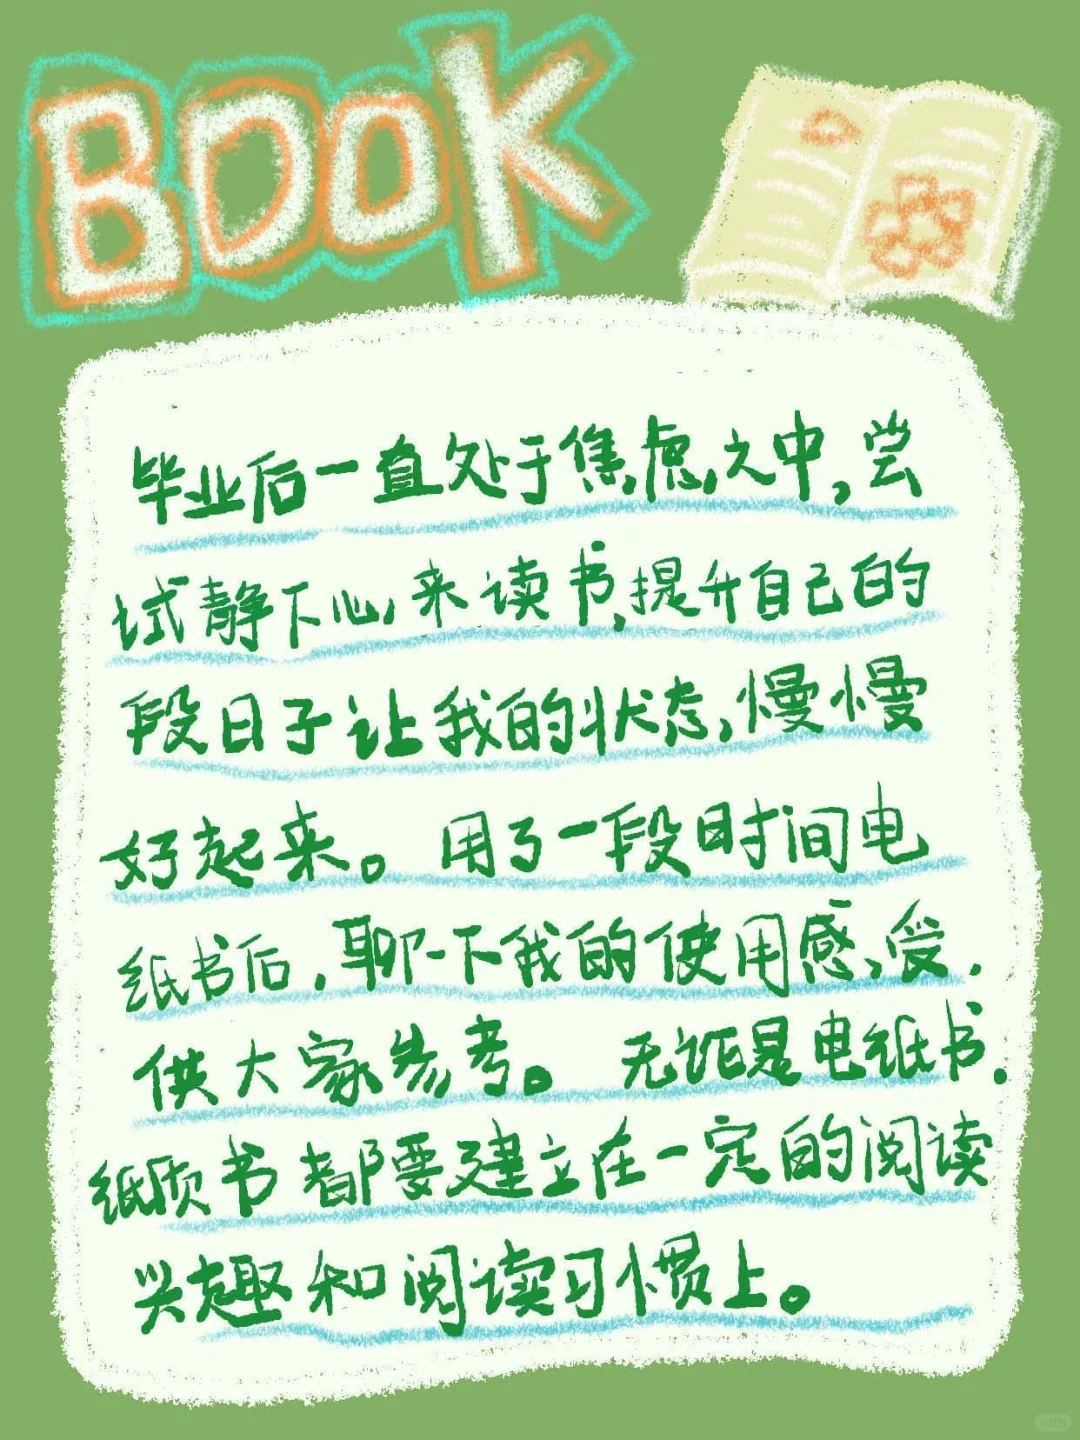 BOOK
毕业后一直处于焦虑之中,尝
试静下心来读书,提升自己的
段日子让我的状态,慢慢
好起来。用了一段时间电
纸书后,聊一下我的使用感受,
供大家参考。无论是电纸书.
纸质书都要建立在一定的阅读
兴趣和阅读习惯上。